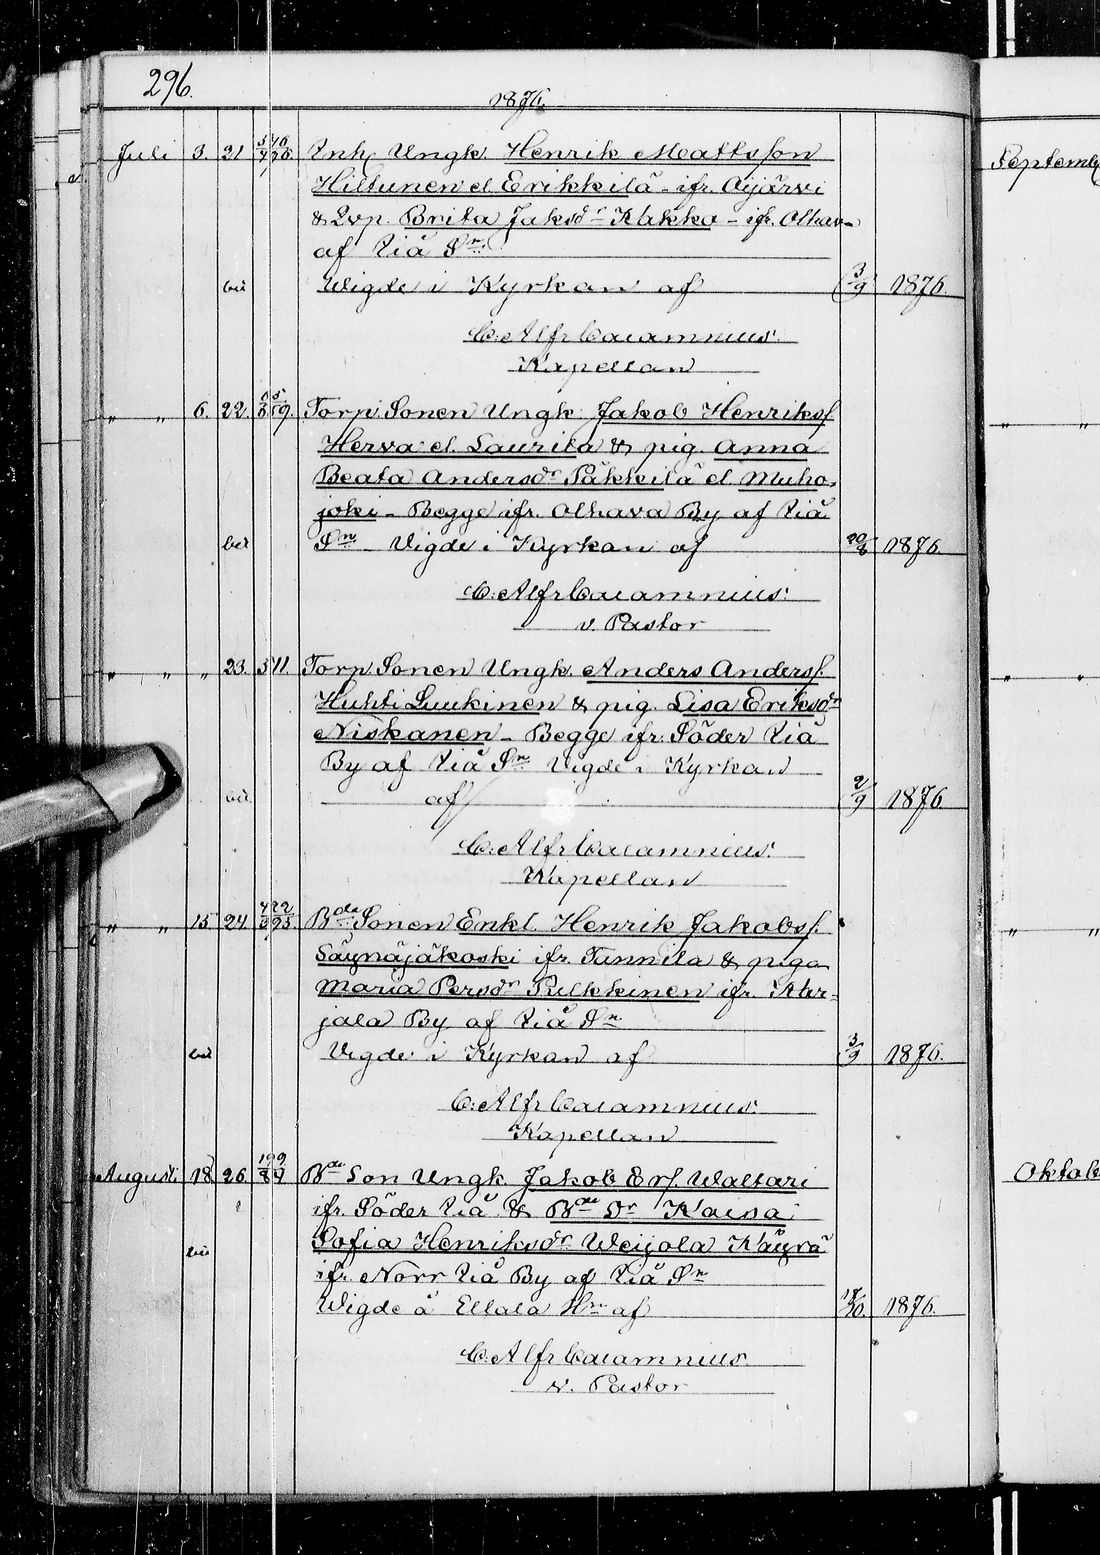 296.
1876.
Juli 3. 21 Inh. Ungk. Henrik Mattsson
Hiltunen el Erikkilä - ifr. Oijärvi
& Qvp. Brita Jaksdr Kakko - ifr. Olhava
af Iiå Sn.
Wigde i Kyrkan af 3/9 1876.
C: Alfr Calamnius.
Kapellan
" " 6. 22. Torp. Sonen Ungk. Jakob Henriksf
Herva el. Laurila & pig. Anna
Beata Andersdr Päkkilä el Muho-
joki - Begge ifr. Olhava By af Iiå
Sn Vigde i Kyrkan af 20/8 1876.
C: Alfr Calamnius:
v. Pastor
" " " 23. 5 11. Torp Sonen Ungk. Anders Andersf.
Huhti Luukinen & pig. Lisa Eriksdr
Niskanen - Begge ifr. Söder Iiå
By af Iiå Sn Vigde i Kyrkan
af 2/9 1876
C: Alfr Calamnius.
Kapellan
" " 15 24 Bde Sonen Enkl. Henrik Jakobsf.
Säynäjäkoski ifr. Tannila & piga
Maria Persdr Pulkkinen ifr. Kar-
jala By af Iiå Sn
Vigde i Kyrkan af 3/9 1876.
C: Alfr Calamnius.
Kapellan
Augusti 18 26. Bde Son Ungk. Jakob Erf. Waltari
ifr. Söder Iiå & Bde Dr Kaisa
Sofia Henriksdr Weijola Käyrä
ifr. Norr Iiå By af Iiå Sn
Wigde å Ellala Hn af 1876.
C: Alfr Calamnius.
v. Pastor
Septemb
" "
" "
" "
Oktob